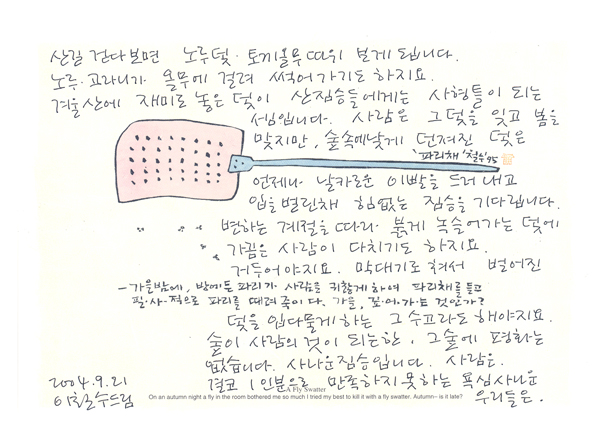 산길 걷다보면 노루덫·토끼올무 따위 보게 됩니다.
노루·고라니가 올무에 걸려 썩어가기도 하지요.
겨울산에 재미로 놓은 덫이 산짐승들에게는 사형틀이 되는
셈입니다. 사람은 그 덫을 잊고 봄을
맞지만, 숲속에 낮게 던져진 덫은
'파리채' 철수 95
언제나 날카로운 이빨을 드러내고
입을 벌린채 힘없는 짐승을 기다립니다.
변하는 계절을 따라 붉게 녹슬어가는 덫에
가끔은 사람이 다치기도 하지요.
거두어야지요. 막대기로 쳐서 벌어진
- 가을밤에, 방에든 파리가 사람을 귀찮게 하여 파리채를 들고
필·사·적으로 파리를 때려 죽이다. 가을, 깊·어·가·는 것인가?
덫을 입다물게 하는 그 수고라도 해야지요.
숲이 사람의 것이 되는 한, 그 숲에 평화는
없습니다. 사나운 짐승입니다. 사람은.
결코 1인분으로 만족하지 못하는 욕심사나운
우리들은.
2004.9.21
이철수드림
A Fly Swatter
On an autumn night a fly in the room bothered me so much I tried my best to kill it with a fly swatter. Autumn– is it late?